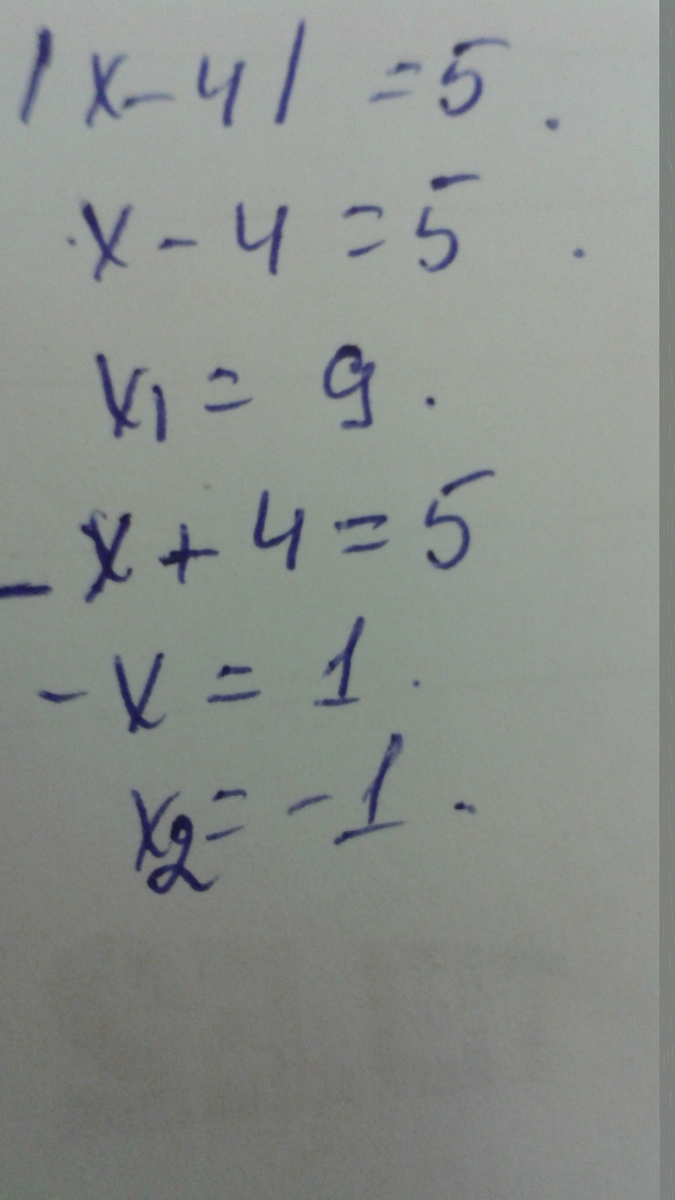 |x-4| = 5.
x - 4 = 5.
x₁ = 9.
-x + 4 = 5
-x = 1.
x₂ = -1.